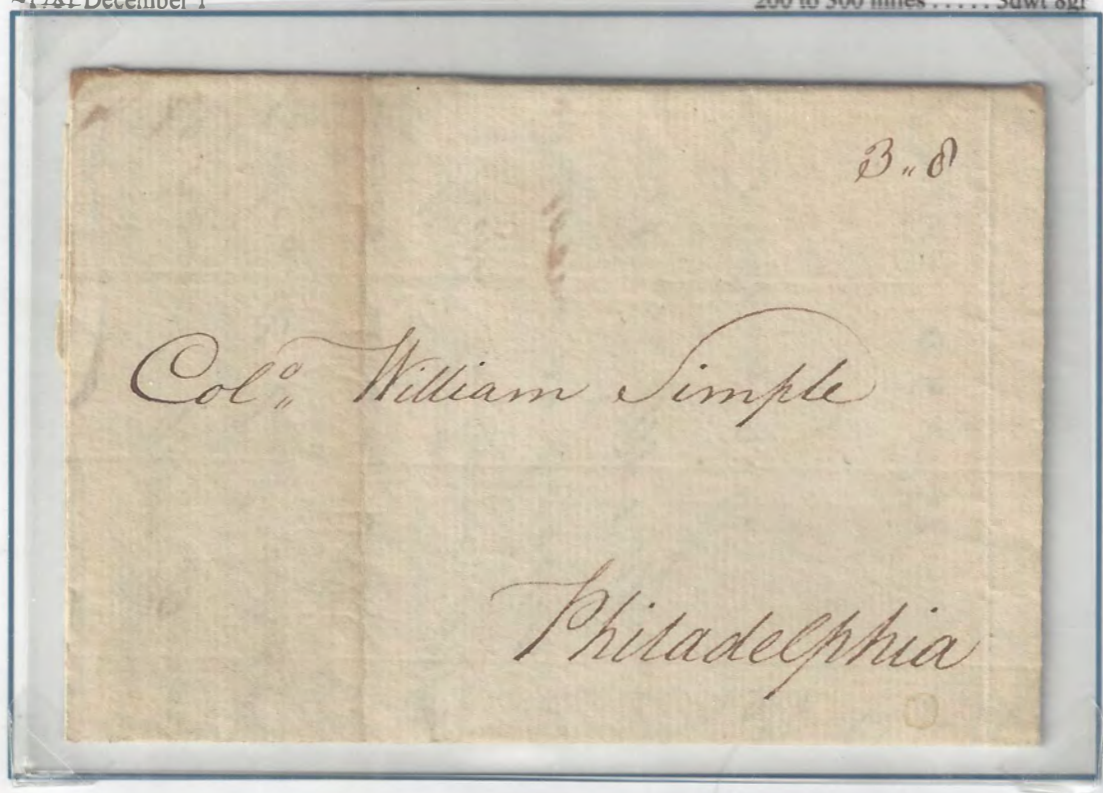 December 1
200 to 300 miles ..... 3dwt 8gr
3 " 8
Col.º William Simple
Philadelphia